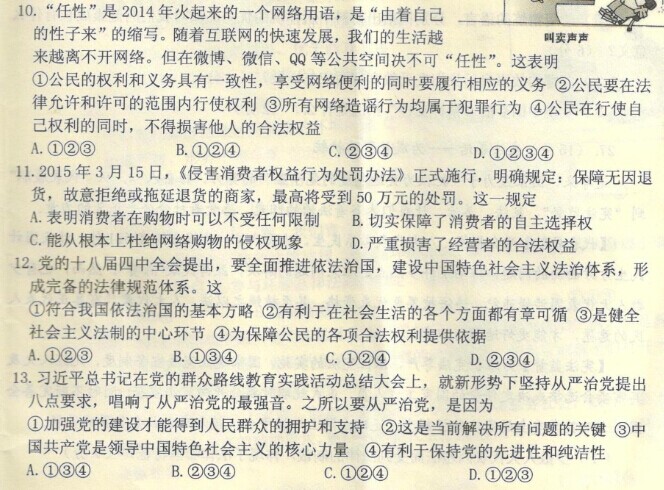 10. “任性”是 2014 年火起来的一个网络用语，是“由着自己
的性子来”的缩写。随着互联网的快速发展，我们的生活越
叫卖声声
来越离不开网络。但在微博、微信、QQ 等公共空间决不可“任性”。这表明
①公民的权利和义务具有一致性，享受网络便利的同时要履行相应的义务 ②公民要在法
律允许和许可的范围内行使权利 ③所有网络造谣行为均属于犯罪行为 ④公民在行使自
己权利的同时，不得损害他人的合法权益
A. ①②③ B. ①②④ C. ②③④ D. ①②③④
11. 2015 年 3 月 15 日，《侵害消费者权益行为处罚办法》正式施行，明确规定：保障无因退
货，故意拒绝或拖延退货的商家，最高将受到 50 万元的处罚。这一规定
A. 表明消费者在购物时可以不受任何限制 B. 切实保障了消费者的自主选择权
C. 能从根本上杜绝网络购物的侵权现象 D. 严重损害了经营者的合法权益
12. 党的十八届四中全会提出，要全面推进依法治国，建设中国特色社会主义法治体系，形
成完备的法律规范体系。这
①符合我国依法治国的基本方略 ②有利于在社会生活的各个方面都有章可循 ③是健全
社会主义法制的中心环节 ④为保障公民的各项合法权利提供依据
A. ①②③ B. ①③④ C. ①②④ D. ②③④
13. 习近平总书记在党的群众路线教育实践活动总结大会上，就新形势下坚持从严治党提出
八点要求，唱响了从严治党的最强音。之所以要从严治党，是因为
①加强党的建设才能得到人民群众的拥护和支持 ②这是当前解决所有问题的关键 ③中
国共产党是领导中国特色社会主义的核心力量 ④有利于保持党的先进性和纯洁性
A. ①③④ B. ②③④ C. ①②④ D. ①②③